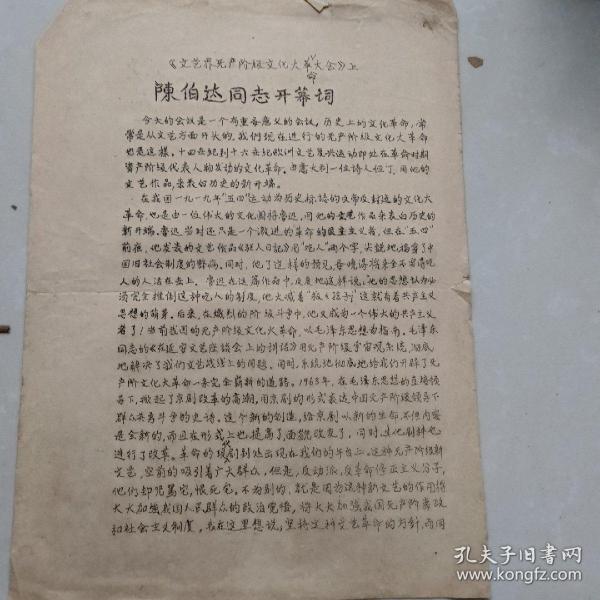 《文艺界无产阶级文化大革命大会》上
陳伯达同志开幕词
今天的会议是一个有重要意义的会议，历史上的文化革命，常
常是从文艺方面开头的，我们现在进行的无产阶级文化大革命
也是这样。十四世纪到十六世纪欧洲文艺复兴运动即处在革命时期
资产阶级代表人物发动的文化革命。由意大利一位诗人但丁，用他的
文艺作品，来表白历史的新开端。
在我国一九一九年"五四"运动为历史标志的反帝反封建的文化大
革命，也是由一位伟大的文化闯将鲁迅，用他的文艺作品来表白历史的
新开端。鲁迅当时还只是一个激进的革命的民主主义者，但在"五四"
前夜，他发表的文艺作品《狂人日记》用"吃人"两个字，尖锐地描写了中
国旧社会制度的弊病。同时，他了这样的预见，要晓得将来是不容得吃
人的人活在世上。鲁迅在这篇作品中，反复地这样说，他的思想认为必
须完全推倒这种吃人的制度，他大喊着"救救孩子"这就有着共产主义
思想的萌芽。后来，在炽烈的阶级斗争中，他又成为一个伟大的共产主义
者了！当前我国的无产阶级文化大革命，以毛泽东思想为指南。毛泽东
同志的《在延安文艺座谈会上的讲话》用无产阶级宇宙观系统，彻底
地解决了我们文艺战线上的问题。同时，系统地彻底地给我们开辟了无
产阶文化大革命一条完全崭新的道路。1963年，在毛泽东思想的直接领
导下，掀起了京剧改革的高潮，用京剧的形式表达中国无产阶级领导下
群众英勇斗争的史诗。这个新的创造，给京剧以新的生命，不但内容
是全新的，而且在形式上也提高了，面貌改变了。同时，其他剧种也
进行了改革。革命的现代剧到处出现在我们的午台上，这种无产阶级新
文艺，空前的吸引着广大群众。但是，反动派，反革命修正主义分子，
他们却咒骂它，恨死它。不为别的，就是因为这种新文艺的作用将
大大加强我国人民群众的政治觉悟，将大大加强我国无产阶级专政
和社会主义制度。我在这里想说，坚持这种文艺革命的方针，而同
孔夫子旧书网
www.kongfz.com